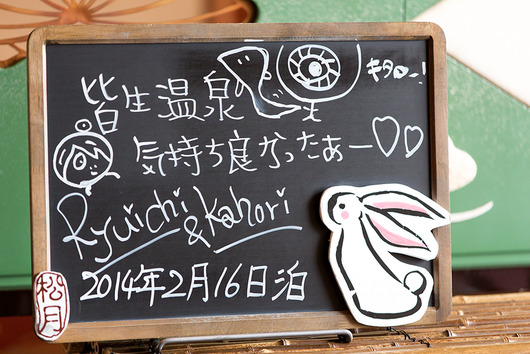 皆生温泉
キタロー!
気持ち良かったぁー♡♡
Ryuichi
&Kahori
2014年2月16日泊
松月